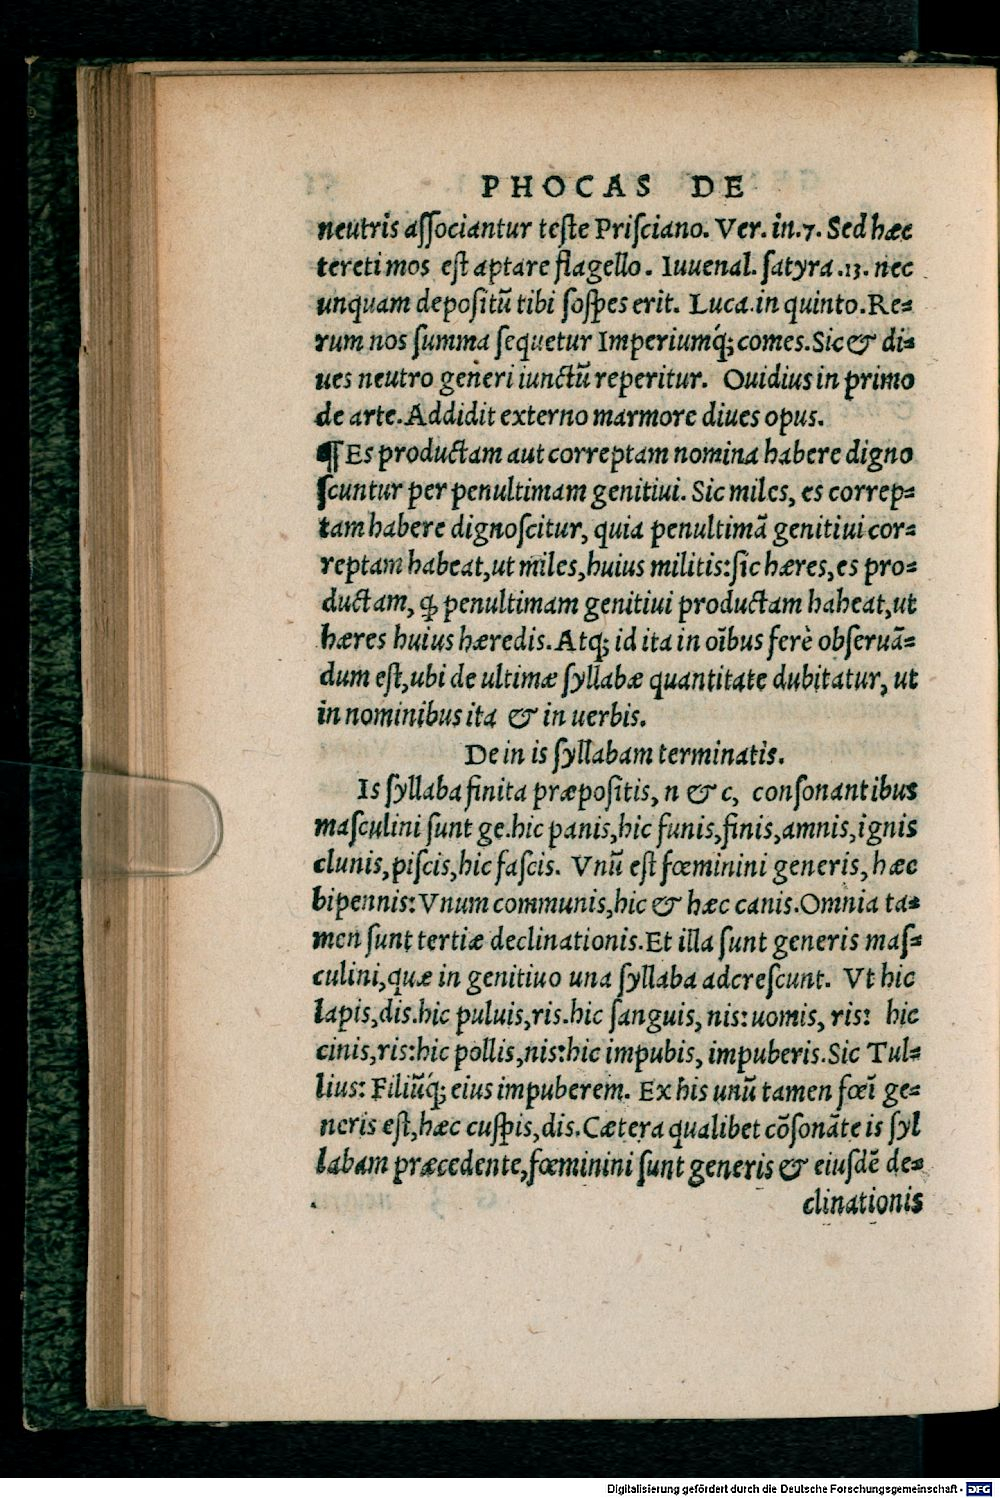 PHOCAS DE
neutris aſſociantur teſte Priſciano. Ver. in.7. Sed hæc
tereti mos eſt aptare flagello. Iuuenal. ſatyra .13. nec
unquam depoſitū tibi ſoſpes erit. Luca. in quinto. Re⸗
rum nos ſumma ſequetur Imperiumq́; comes. Sic & di⸗
ues neutro generi iunctū reperitur. Ouidius in primo
de arte. Addidit externo marmore diues opus.
¶ Es productam aut correptam nomina habere digno
ſcuntur per penultimam genitiui. Sic miles, es correp⸗
tam habere dignoſcitur, quia penultimā genitiui cor⸗
reptam habeat, ut miles, huius militis: ſic hæres, es pro⸗
ductam, ꝙ penultimam genitiui productam habeat, ut
hæres huius hæredis. Atq; id ita in oībus ferè obſeruā⸗
dum eſt, ubi de ultimæ ſyllabæ quantitate dubitatur, ut
in nominibus ita & in uerbis.
De in is ſyllabam terminatis.
Is ſyllaba finita præpoſitis, n & c, conſonantibus
maſculini ſunt ge. hic panis, hic funis, finis, amnis, ignis
clunis, piſcis, hic faſcis. Vnū eſt fœminini generis, hæc
bipennis: Vnum communis, hic & hæc canis. Omnia ta⸗
men ſunt tertiæ declinationis. Et illa ſunt generis maſ⸗
culini, quæ in genitiuo una ſyllaba adcreſcunt. Vt hic
lapis, dis. hic puluis, ris. hic ſanguis, nis: uomis, ris: hic
cinis, ris: hic pollis, nis: hic impubis, impuberis. Sic Tul⸗
lius: Filiūq́; eius impuberem. Ex his unū tamen fœī ge⸗
neris eſt, hæc cuſpis, dis. Cætera qualibet cōſonāte is ſyl
labam præcedente, fœminini ſunt generis & eiuſdē de⸗
clinationis
Digitalisierung gefördert durch die Deutsche Forschungsgemeinschaft - DFG